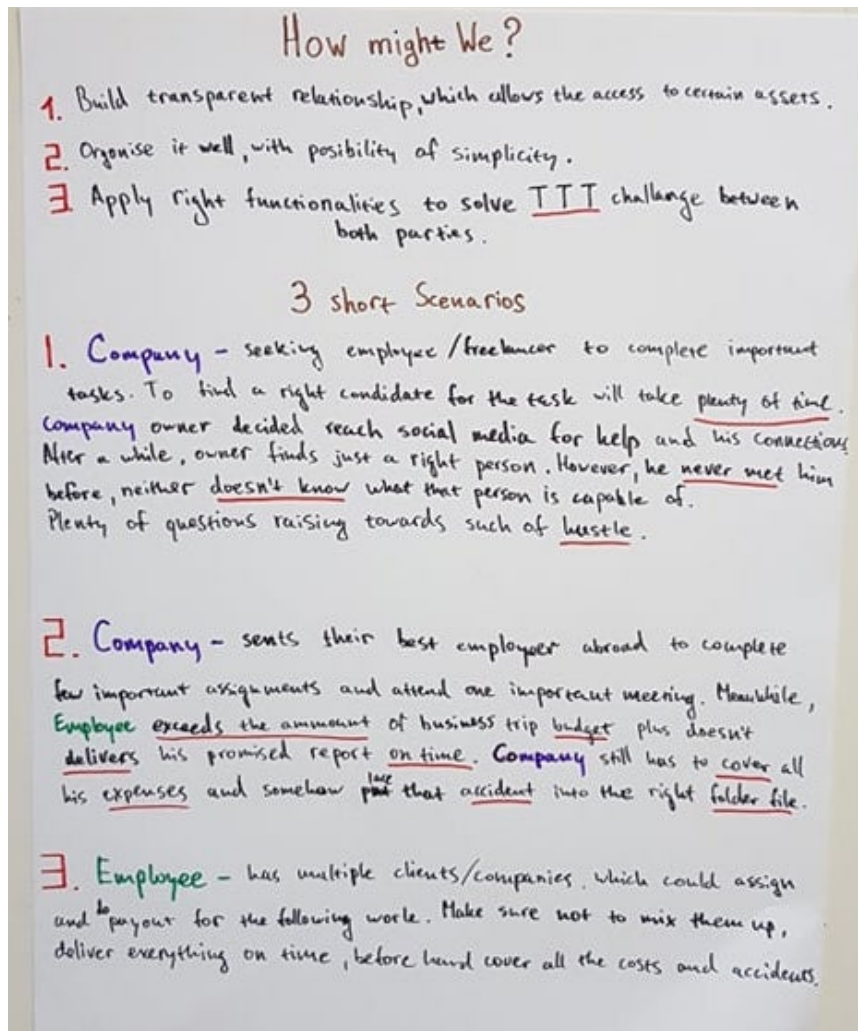 How might We?
1. Build transparent relationship, which allows the access to certain assets.
2. Organise it well, with posibility of simplicity.
3 Apply right functionalities to solve TTT challange between
both parties.
3 short Scenarios
1. Company - seeking employee/freelancer to complete important
tasks. To find a right candidate for the task will take plenty of time.
Company owner decided reach social media for help and his connections
After a while, owner finds just a right person. However, he never met him
before, neither doesn't know what that person is capable of.
Plenty of questions raising towards such of hustle.
2. Company - sents their best employeer abroad to complete
few important assignments and attend one important meering. Meanwhile,
Employee exceeds the ammount of business trip budget plus doesn't
delivers his promised report on time. Company still has to cover all
his expenses and somehow place that accident into the right folder file.
3. Employee - has multiple clients/companies, which could assign
and to payout for the following work. Make sure not to mix them up,
deliver everything on time, before hand cover all the costs and accidents.